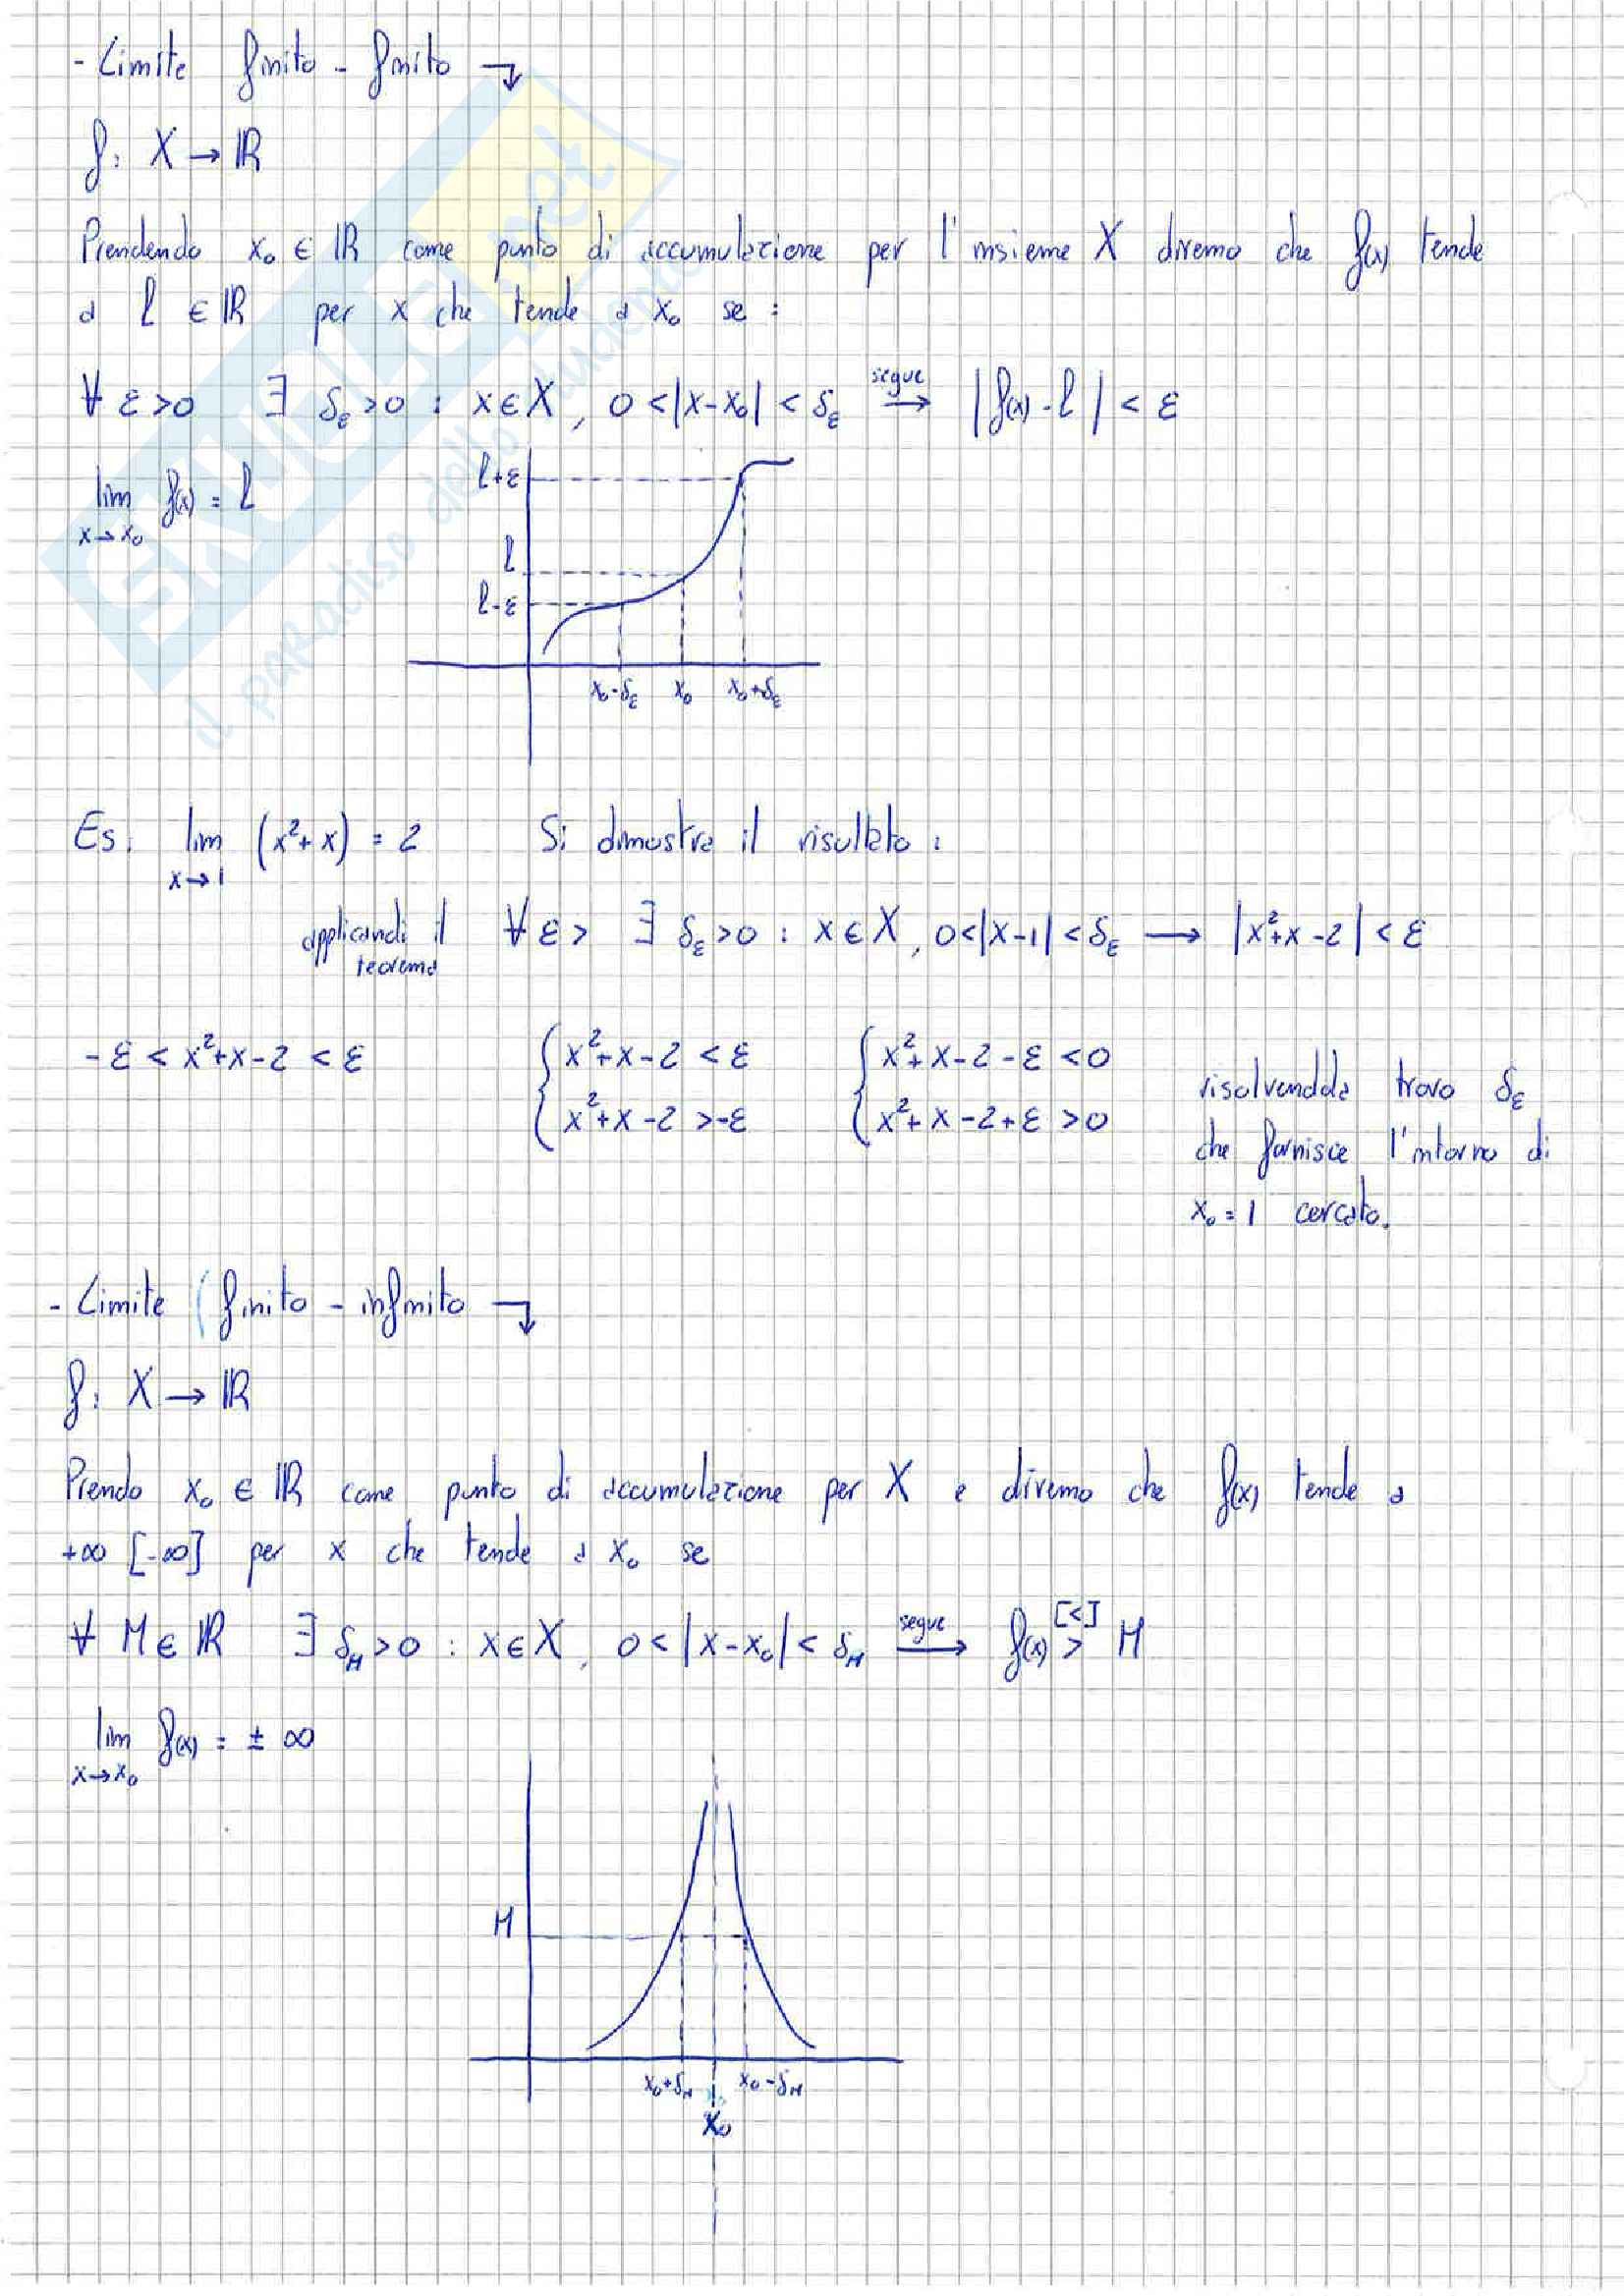 - Limite finito - finito ↴
f: X → ℝ
Prendendo x₀ ∈ ℝ come punto di accumulazione per l'insieme X diremo che f(x) tende
a l ∈ ℝ per x che tende a x₀ se :
∀ ε>0 ∃ δ_ε>0 : x∈X , 0<|x-x₀|<δ_ε segue → |f(x)-l|<ε
lim f(x) = l
x→x₀
l+ε
l
l-ε
x₀-δ_ε x₀ x₀+δ_ε
Es: lim (x²+x) = 2 Si dimostra il risultato :
x→1
applicandi il ∀ ε> ∃ δ_ε>0 : x∈X , 0<|x-1|<δ_ε → |x²+x-2|<ε
teorema
-ε < x²+x-2 < ε { x²+x-2 < ε { x²+x-2-ε < 0 risolvendola trovo δ_ε
x²+x-2 >-ε x²+x-2+ε >0 che fornisce l'intorno di
x₀=1 cercato.
- Limite ( finito - infinito ↴
f: X → ℝ
Prendo x₀ ∈ ℝ come punto di accumulazione per X e diremo che f(x) tende a
+∞ [-∞] per x che tende a x₀ se
∀ M∈ℝ ∃ δ_M>0 : x∈X , 0<|x-x₀|<δ_M segue → f(x) > [<] M
lim f(x) = ± ∞
x→x₀
M
x₀+δ_M x₀-δ_M
x₀
SKUOLA.net
il paradiso dello studente